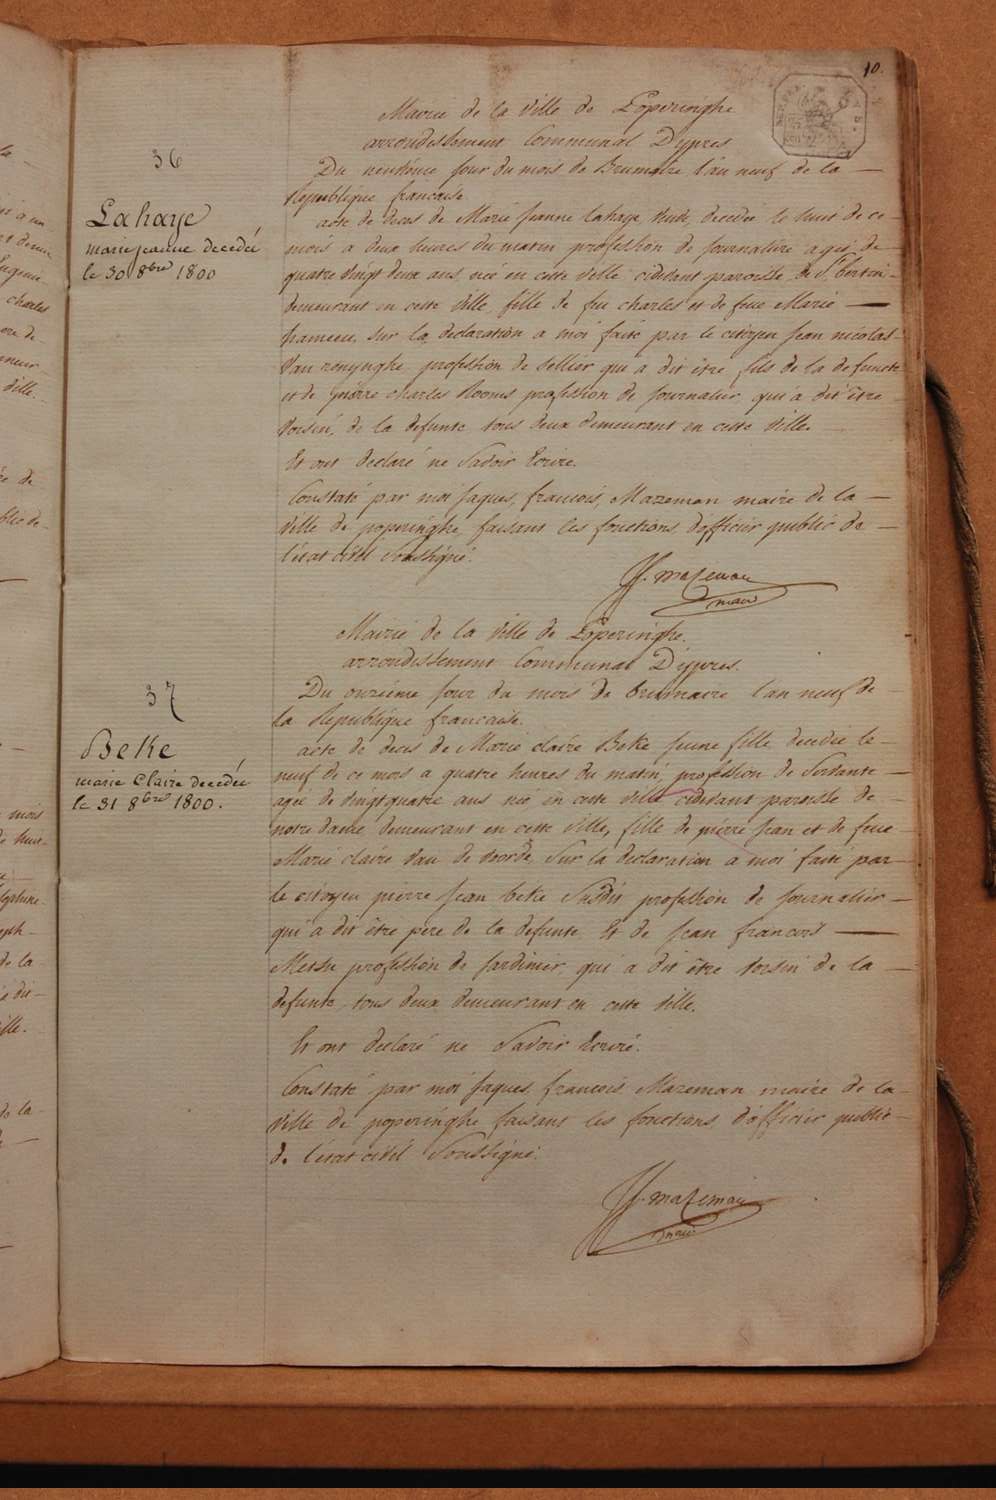 10.
Mairie de la ville de Poperinghe
arrondissement Communal D'ypres
36
Du neuvième jour du mois de Brumaire l'an neuf de la —
Republique francaise
Lahaye
marie jeanne decedée
le 30 8bre 1800
acte de deces de Marie Jeanne Lahaye veuve, decedée le huit de ce —
mois a deux heures du matin profession de journalière agée de
quatre vingt deux ans, née en cette ville cidevant paroisse de St bertin
demeurant en cette ville, fille de feu charles et de feue Marie —
sur la declaration a moi faite par le citoyen jean nicolas —
van renynghe profession de sellier qui a dit être fils de la defuncte
et de pierre charles profession de journalier, qui a dit être —
voisin, de la defunte tous deux demeurant en cette ville. —
Et ont declaré ne Savoir Ecrire.
Constaté par moi jaques, francois, Mazeman maire de la —
ville de poperinghe faisant les fonctions d'officier public de —
l'état civil Soussigné.
JJ. mazeman
maire
Mairie de la ville de Poperinghe.
arrondissement Communal D'ypres.
37
Du onzième jour du mois de brumaire l'an neuf de —
la Republique francaise.
Beke
marie Claire decedée
le 31 8bre 1800.
acte de deces de Marie claire Beke jeune fille decedée le —
neuf de ce mois a quatre heures du matin, profession de Servante —
agée de vingt quatre ans née en cette ville cidevant paroisse de —
notre dame demeurant en cette ville, fille de pierre jean et de feue —
Marie claire van de voorde, Sur la declaration a moi faite par —
le citoyen pierre jean beke Susdit profession de journalier —
qui a dit être père de la defunte. Et de jean francois —
profession de jardinier, qui a dit être voisin de la —
defunte, tous deux demeurant en cette ville.
Et ont declaré ne Savoir Ecrire.
Constaté par moi jaques francois Mazeman maire de la —
ville de poperinghe faisant les fonctions d'officier public —
de l'état civil Soussigné.
JJ. mazeman
maire